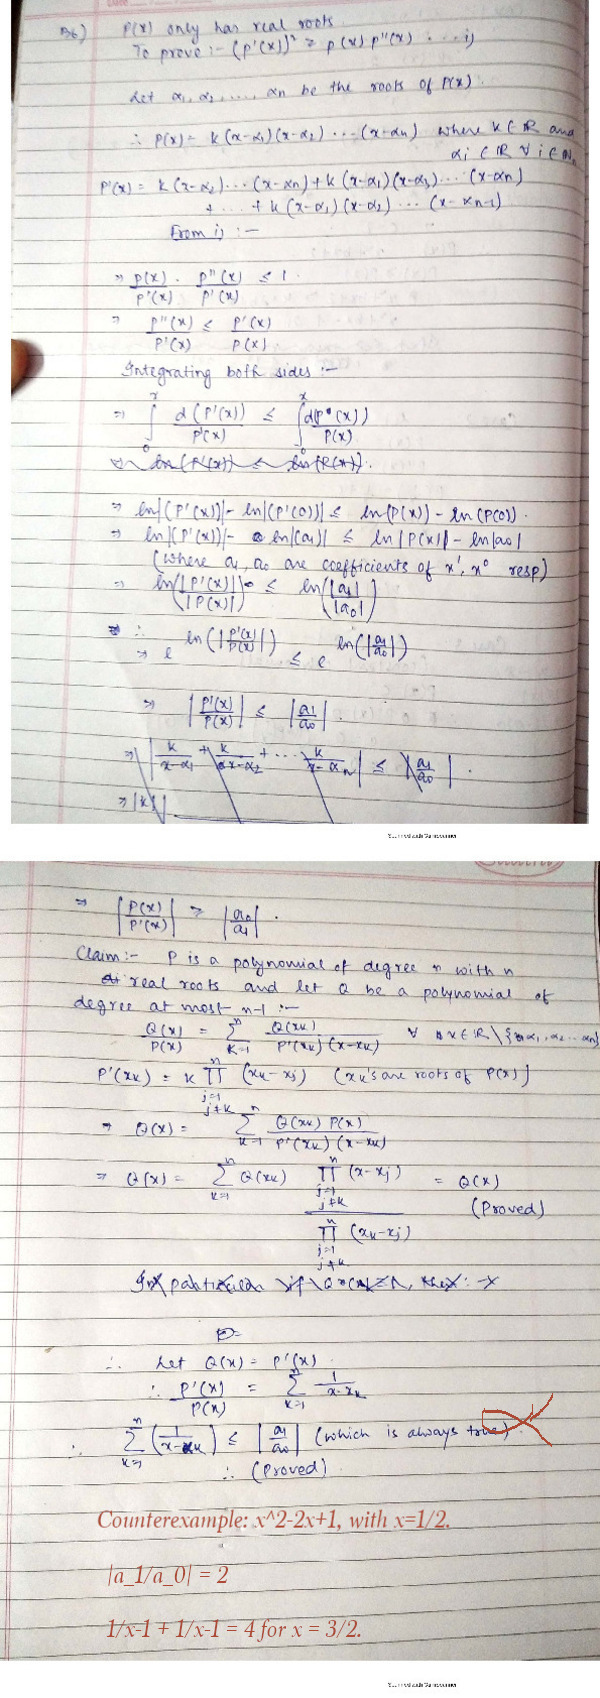 B6) P(x) only has real roots.
To prove :- (P'(x))² ≥ P(x) P''(x) ... i)
Let α₁, α₂, ..., αn be the roots of P(x).
∴ P(x) = k(x-α₁)(x-α₂) ... (x-αn) where k ∈ ℝ and
αi ∈ ℝ ∀ i ∈ ℕn
P'(x) = k(x-α₂)...(x-αn) + k(x-α₁)(x-α₃)...(x-αn)
+ ... + k(x-α₁)(x-α₂) ... (x-αn-1)
From i) :-
⇒ P(x)/P'(x) · P''(x)/P'(x) ≤ 1.
⇒ P''(x)/P'(x) ≤ P'(x)/P(x)
Integrating both sides :-
⇒ ∫₀ˣ d(P'(x))/P'(x) ≤ ∫₀ˣ d(P(x))/P(x)
⇒ ln(P'(x)) ≤ ln(P(x)).
⇒ ln|(P'(x))| - ln|(P'(0))| ≤ ln(P(x)) - ln(P(0)).
⇒ ln|(P'(x))| - ln(a₁)| ≤ ln|P(x)| - ln|a₀|
(where a₁, a₀ are coefficients of x¹, x⁰ resp)
⇒ ln(|P'(x)|/|P(x)|) ≤ ln(|a₁|/|a₀|)
∴
⇒ e^ln(|P'(x)/P(x)|) ≤ e^ln(|a₁/a₀|)
⇒ |P'(x)/P(x)| ≤ |a₁/a₀|.
⇒ |k/(x-α₁) + k/(x-α₂) + ... k/(x-αn)| ≤ |a₁/a₀|.
⇒ |k|
⇒ |P(x)/P'(x)| ≥ |a₀/a₁|.
Claim :- P is a polynomial of degree n with n
real roots and let Q be a polynomial of
degree at most n-1 :-
Q(x)/P(x) = Σₖ₌₁ⁿ Q(xk)/(P'(xk)(x-xk)) ∀ x ∈ ℝ\{α₁, α₂...αn}
P'(xk) = k ∏ⁿ j=1 j≠k (xk-xj) (xk's are roots of P(x))
⇒ Q(x) = Σₖ₌₁ⁿ Q(xk) P(x)/(P'(xk)(x-xk))
⇒ Q(x) = Σₖ₌₁ⁿ Q(xk) ∏ⁿ j=1 j≠k (x-xj) / ∏ⁿ j=1 j≠k (xk-xj) = Q(x)
(Proved)
In particular if
∴ Let Q(x) = P'(x).
∴ P'(x)/P(x) = Σₖ₌₁ⁿ 1/(x-xk)
∴ Σₖ₌₁ⁿ (1/(x-xk)) ≤ |a₁/a₀| (which is always true).
∴ (Proved)
Counterexample: x^2-2x+1, with x=1/2.
|a_1/a_0| = 2
1/x-1 + 1/x-1 = 4 for x = 3/2.